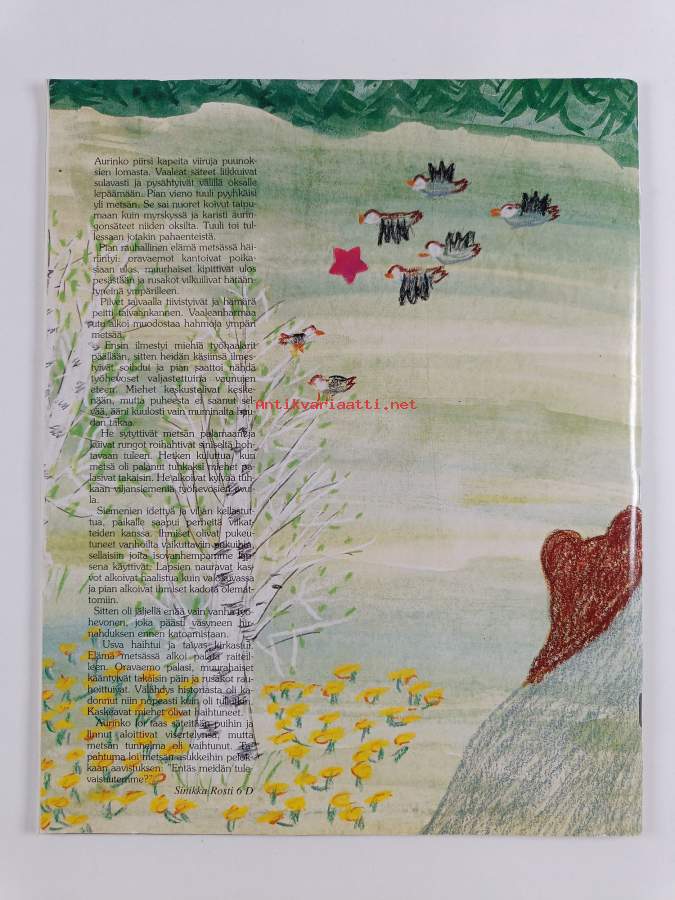 Aurinko piirsi kapeita viiruja puunok-
sien lomasta. Vaaleat säteet liikkuivat
sulavasti ja pysähtyivät välillä oksalle
lepäämään. Pian vieno tuuli pyyhkäisi
yli metsän. Se sai nuoret koivut taipu-
maan kuin myrskyssä ja karisti aurin-
gonsäteet niiden oksilta. Tuuli toi tul-
lessaan jotakin pahaenteistä.
Pian rauhallinen elämä metsässä häi-
riintyi: oravaemot kantoivat poika-
siaan ulos, muurhaiset kipittivät ulos
pesästään ja rusakot vilkuilivat hätään-
tyneinä ympärilleen.
Pilvet taivaalla tiivistyivät ja hämärä
peitti taivaankannen. Vaaleanharmaa
utu alkoi muodostaa hahmoja ympäri
metsää.
Ensin ilmestyi miehiä työhaalarit
päällään, sitten heidän käsiinsä ilmes-
tyivät soihdut ja pian saattoi nähdä
työhevoset valjastettuina vaunujen
eteen. Miehet keskustelivat keske-
nään, mutta puheesta ei saanut sel-
vää, ääni kuulosti vain muminalta hau-
dan takaa.
Antikvariaatti.net
He sytyttivät metsän palamaan ja
kuivat rungot roihahtivat siniseltä hoh-
tavaan tuleen. Hetken kuluttua, kun
metsä oli palanut tuhkaksi miehet pa-
lasivat takaisin. He alkoivat kylvää tuh-
kaan viljansiemeniä työhevosien avul-
la.
Siemenien idettyä ja viljan kellastut-
tua, paikalle saapui perheitä viikat-
teiden kanssa. Ihmiset olivat pukeu-
tuneet vanhoilta vaikuttaviin pukuihin
sellaisiin joita isovanhempamme lap-
sena käyttivät. Lapsien nauravat kas-
vot alkoivat haalistua kuin valokuvassa
ja pian alkoivat ihmiset kadota olemat-
tomiin.
Sitten oli jäljellä enää vain vanha työ-
hevonen, joka päästi väsyneen hir-
nahduksen ennen katoamistaan.
Usva haihtui ja taivas kirkastui.
Elämä metsässä alkoi palata raiteil-
leen. Oravaemo palasi, muurahaiset
kääntyivät takaisin päin ja rusakot rau-
hoittuivat. Välähdys historiasta oli ka-
donnut niin nopeasti kuin oli tullutkin.
Kaskeavat miehet olivat haihtuneet.
Aurinko loi taas säteitään puihin ja
linnut aloittivat visertelynsä, mutta
metsän tunnelma oli vaihtunut. Ta-
pahtuma loi metsän asukkeihin pelok-
kaan aavistuksen: "Entäs meidän tule-
vaisuutemme?"
Sinikka Rosti 6 D